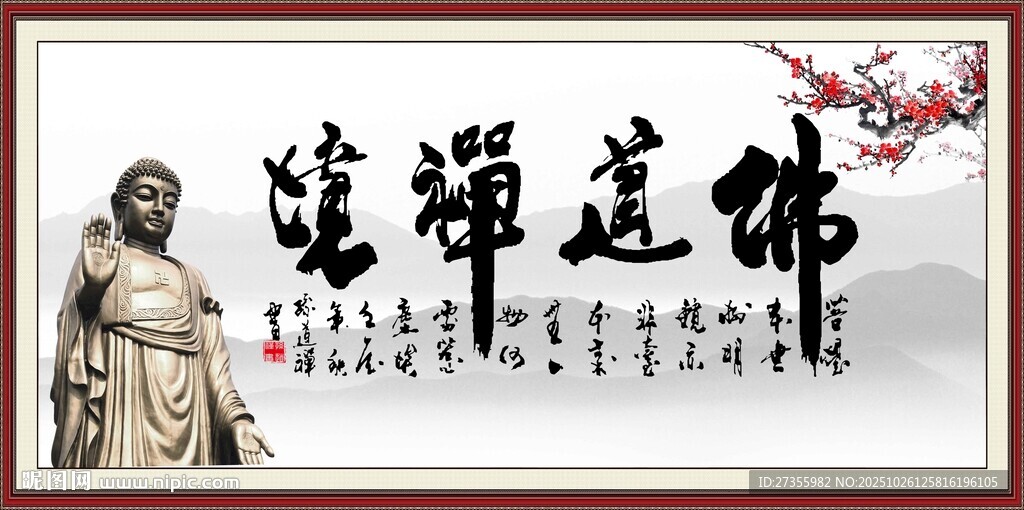 佛道禪境
菩提
本無
樹明
鏡亦
非臺
本來
無一
物何
處惹
塵埃
年秋
道禪
書
昵图网 www.nipic.com
ID:27355982 NO:20251026125816196105